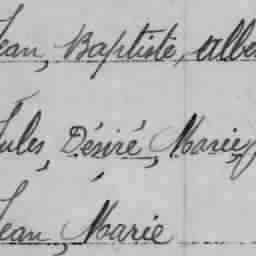 Jean, Baptiste, albe
Jules, Désiré, Marie,
Jean, Marie